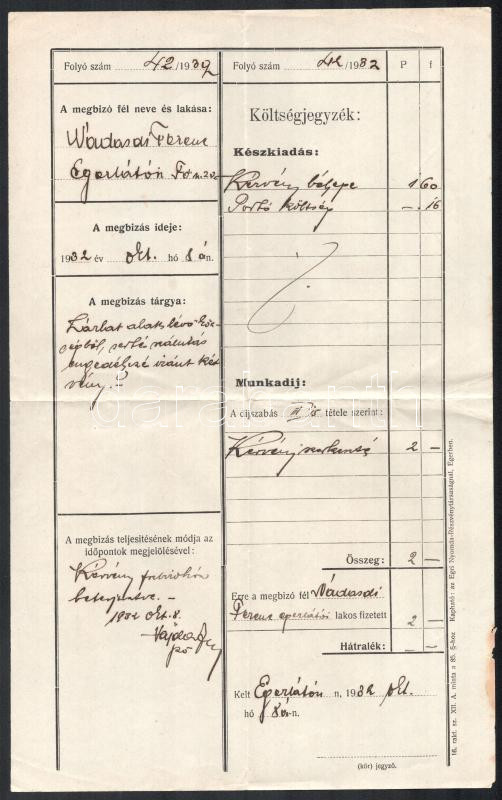 Folyó szám 42/1932
A megbizó fél neve és lakása:
Vadasdi Ferenc
Egerlátón
A megbizás ideje:
1932 év okt. hó 8 án.
A megbizás tárgya:
Zárlat alatt lévő
iránt
A megbizás teljesitésének módja az
időpontok megjelölésével:
Kérvény
beterjesztve.
1932 okt. 8.
Folyó szám 42/1932 P f
Költségjegyzék:
Készkiadás:
Kérvény bélyege 1 60
Portó költség —. 16
Munkadij:
A dijszabás tétele szerint:
Kérvény 2 —
Összeg: 2 —
Erre a megbizó fél Vadasdi
Ferenc egerlátói lakos fizetett 2 —
Hátralék: —
Kelt Egerlátón n, 1932 okt.
hó 8 án-n.
(kör) jegyző.
16. rakt. sz. XII. A. minta a 85. §-hoz Kapható: az Egri Nyomda-Részvénytársaságnál, Egerben.
darabanth